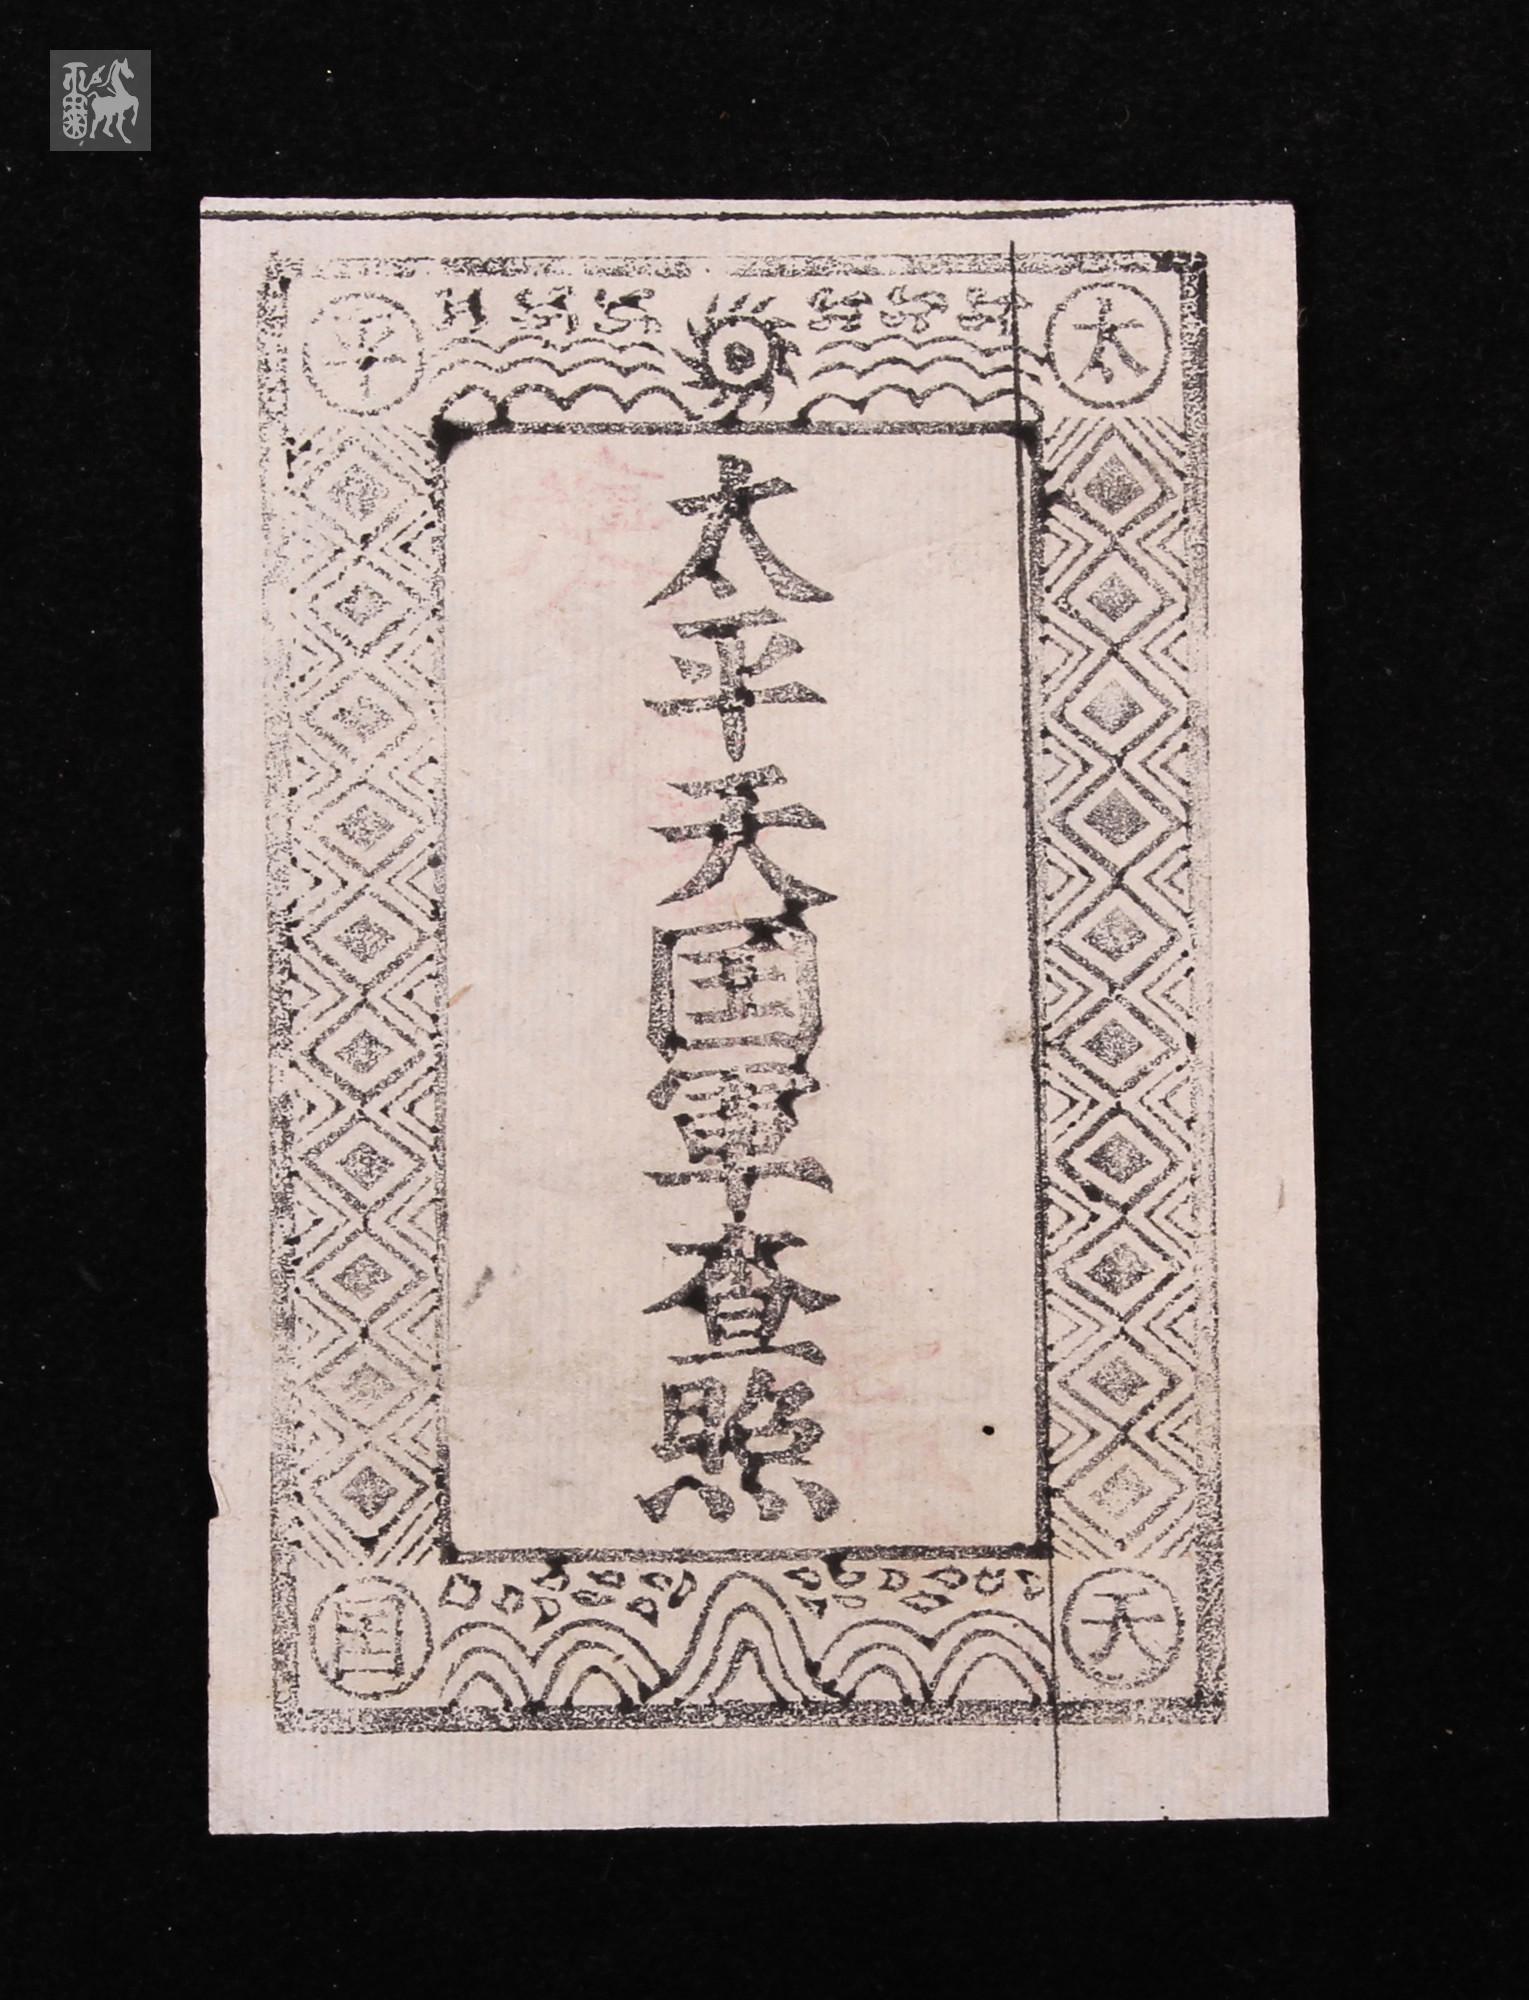 太
平
天
囯
太平天囯軍查照